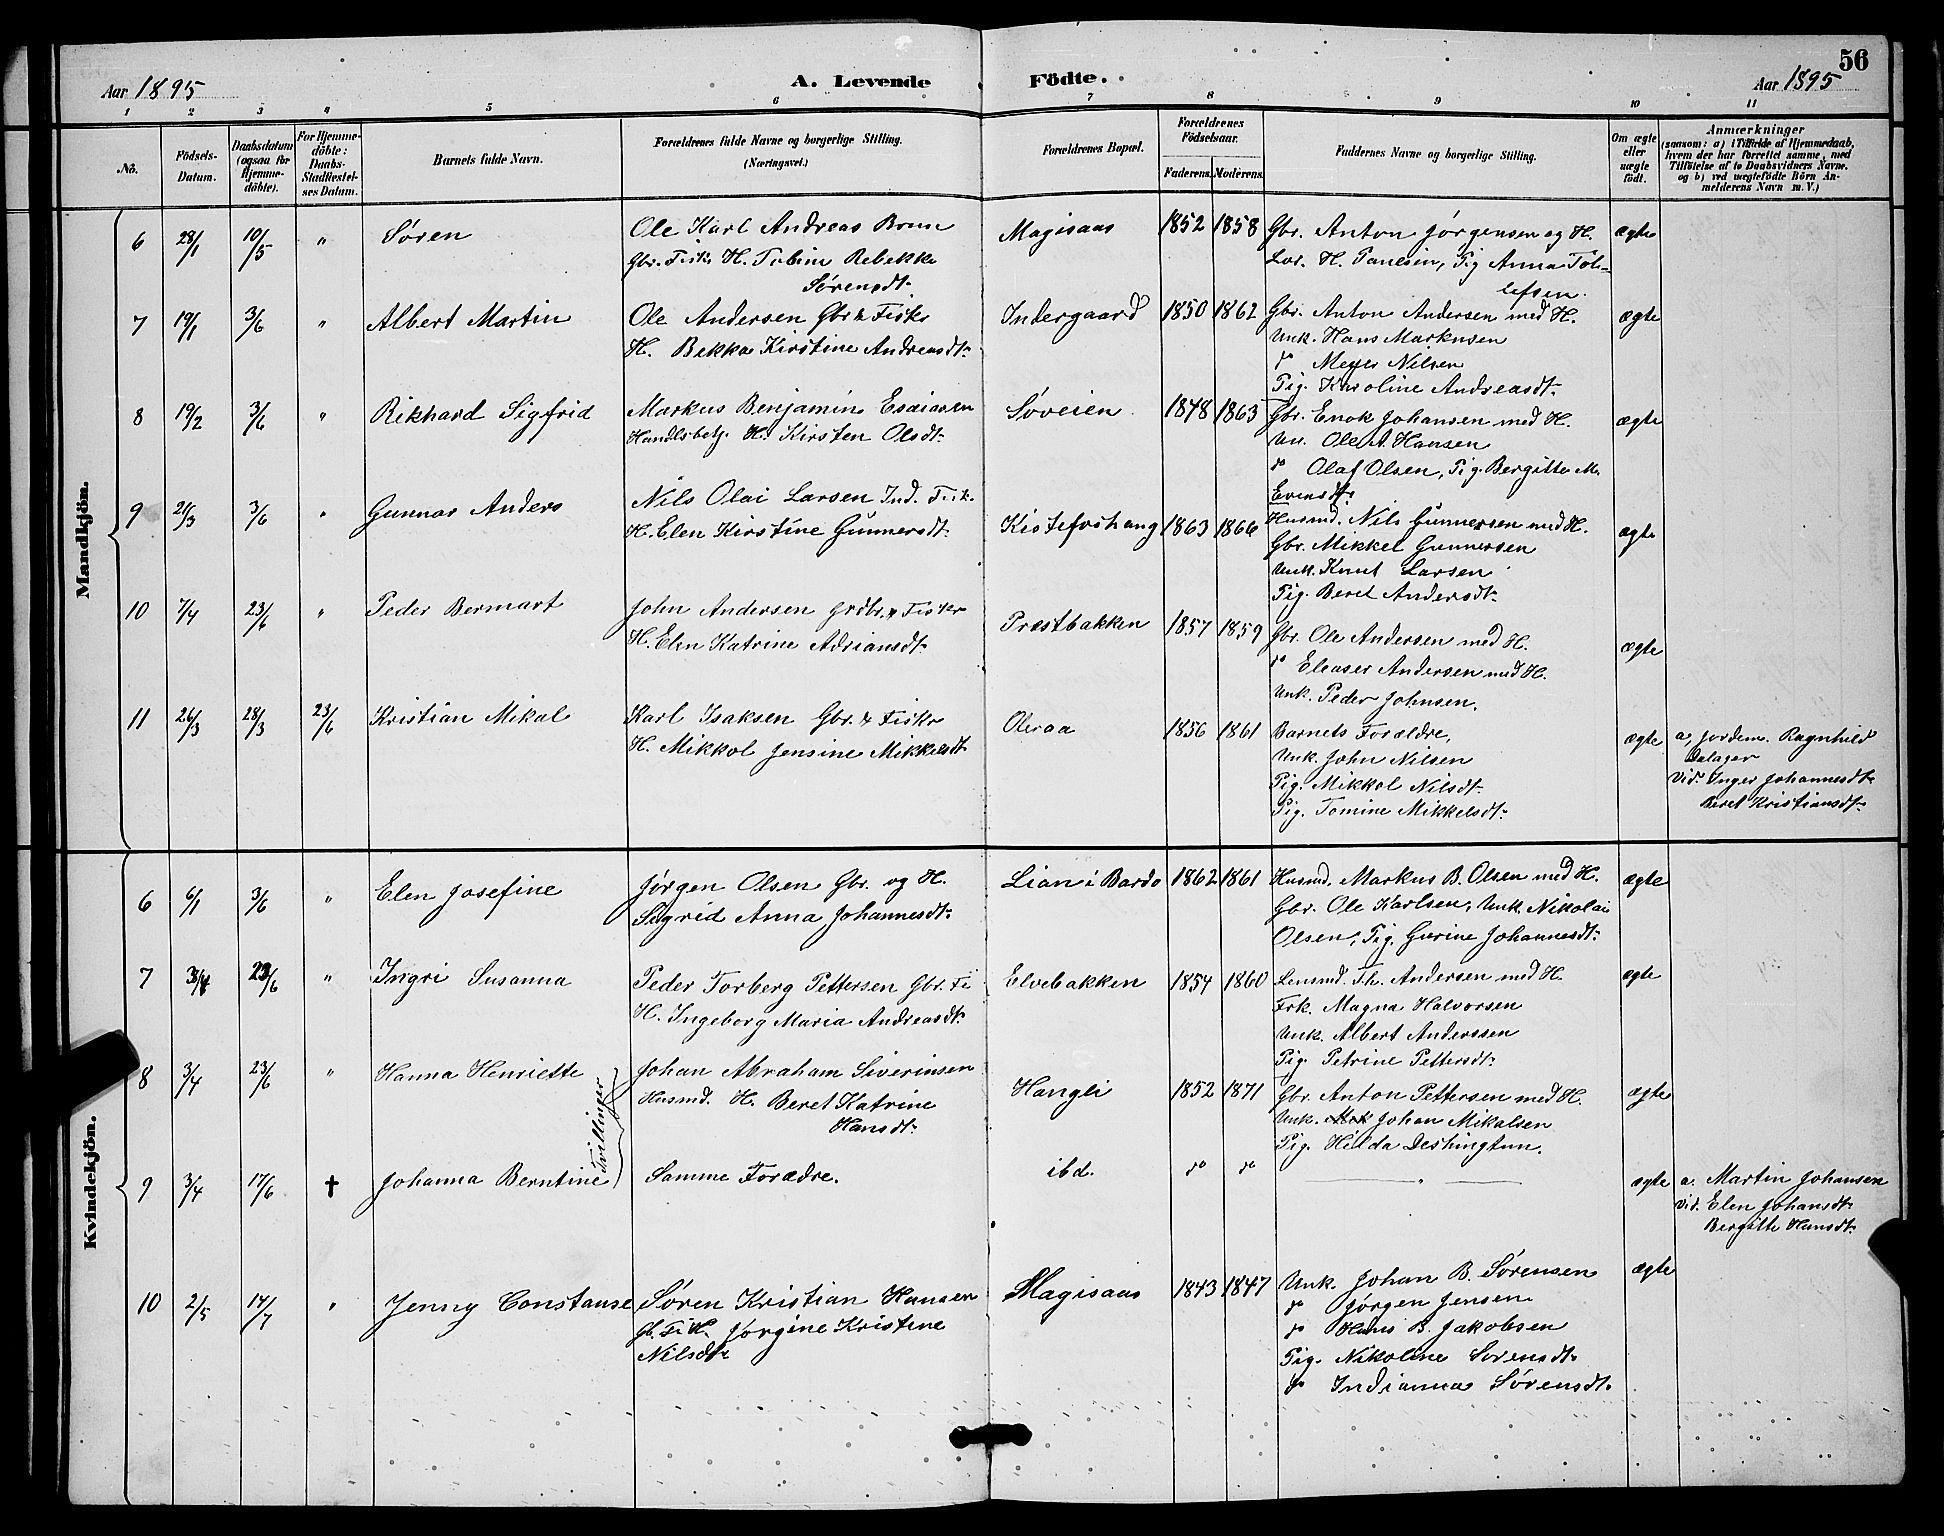 56
Aar 1895
A. Levende Födte.
Aar 1895
1 2 3 4 5 6 7 8 9 10 11
No.
Födsels-Datum.
Daabsdatum (ogsaa for Hjemme-döbte).
For Hjemme-döbte: Daabs-Stadfæstelses Datum.
Barnets fulde Navn.
Forældrenes fulde Navne og borgerlige Stilling.
(Næringsvei.)
Forældrenes Bopæl.
Forældrenes Födselsaar.
Faderens. Moderens.
Faddernes Navne og borgerlige Stilling.
Om ægte eller uægte födt.
Anmærkninger
(saasom: a) i Tilfælde af Hjemmedaab,
hvem der har forrettet samme, med
Tilföielse af to Daabsvidners Navne.
og b) ved uægtefödte Börn An-
melderens Navn m. V.)
Mandkjön.
6 28/1 10/5 " Søren Ole Karl Andreas Brun Magisaas 1852 1858 Gbr. Anton Jørgensen og H. ægte
Gbr. Fisk. H. Rebekke
Sørensdt.
Lor. H. Pig Anna Tol-
lefsen.
7 19/1 3/6 " Albert Martin Ole Andersen Gbr & Fisker Indergaard 1850 1862 Gbr. Anton Andersen med H. ægte
H. Bekka Kirstine Andreasdt.
Unk. Hans Markusen
do Meyer Nilsen
Pig. Karoline Andreasdt.
8 19/2 3/6 " Rikhard Sigfrid Markus Benjamin Esaiasen Søveien 1848 1863 Gbr. Enok Johansen med H. ægte
Handlsbetj. H. Kirsten Olsdt.
Un. Ole A. Hansen
do Olaf Olsen, Pig. Bergitte M.
Evensdt.
9 21/3 3/6 " Gunnar Anders Nils Olai Larsen Ind. Fisk. Kistefoshaug 1863 1866 Husmd. Nils Gunnersen med H. ægte
H. Elen Kirstine Gunnersdt.
Gbr. Mikkel Gunnersen
Unk. Knut Larsen
Pig. Beret Andersdt.
10 7/4 23/6 " Peder Bermart John Andersen grdbr. & Fisker Præstbakken 1857 1859 Gbr. Ole Andersen med H. ægte
H. Elen Katrine Adriansdt.
do Eleaser Andersen med H.
Unk. Peder Johnsen.
11 26/3 28/3 23/6 Kristian Mikal Karl Isaksen Gbr. & Fisker 1856 1861 Barnets Forældre, ægte a, Jordem. Ragnhild
H. Mikkol Jensine Mikkelsdt.
Unk. John Nilsen
Dalager
Pig. Mikkol Nilsdt.
Vid. Inger Johannesdt.
Pig. Tomine Mikkelsdt.
Beret Kristiansdt.
Kvindekjön.
6 6/1 3/6 " Elen Josefine Jørgen Olsen Gbr. og H. Lian i Bardo 1862 1861 Husmd. Markus B. Olsen med H. ægte
Sigrid Anna Johannesdt.
Gbr. Ole Karlsen, Unk. Nikolai
Olsen, Pig. Gurine Johannesdt.
7 3/4 23/6 " Ingri Susanna Peder Torberg Pettersen Gbr. Fi Elvebakken 1854 1860 Lensmd. Th. Andersen med H. ægte
H. Ingeborg Maria Andreasdt.
Frk. Magna Halvorsen
Unk. Albert Anderssen
Pig. Petrine Pettersdt.
8 3/4 23/6 " Hanna Henriette Johan Abraham Siverinsen Hangli 1852 1871 Gbr. Anton Pettersen med H. ægte
Husmd. H. Beret Katrine
Hansdt.
Unk. Johan Mikalsen
Pig. Hilda Deshingtun.
Tvillinger
9 3/4 17/6 ✝ Johanna Berntine Samme Forædre. ibd. do do " ægte a. Martin Johansen
Vid. Elen Johansdt.
Bergitte Hansdt.
10 2/5 14/7 " Jenny Constanse Søren Kristian Hansen Magisaas 1843 1847 Unk. Johan B. Sørensen ægte
gb. Fi H. Jørgine Kristine
Nilsdt.
do Jørgen Jensen
do Hans B. Jakobsen
Pig. Nikoline Sørensdt.
do Indianna Sørensdt.